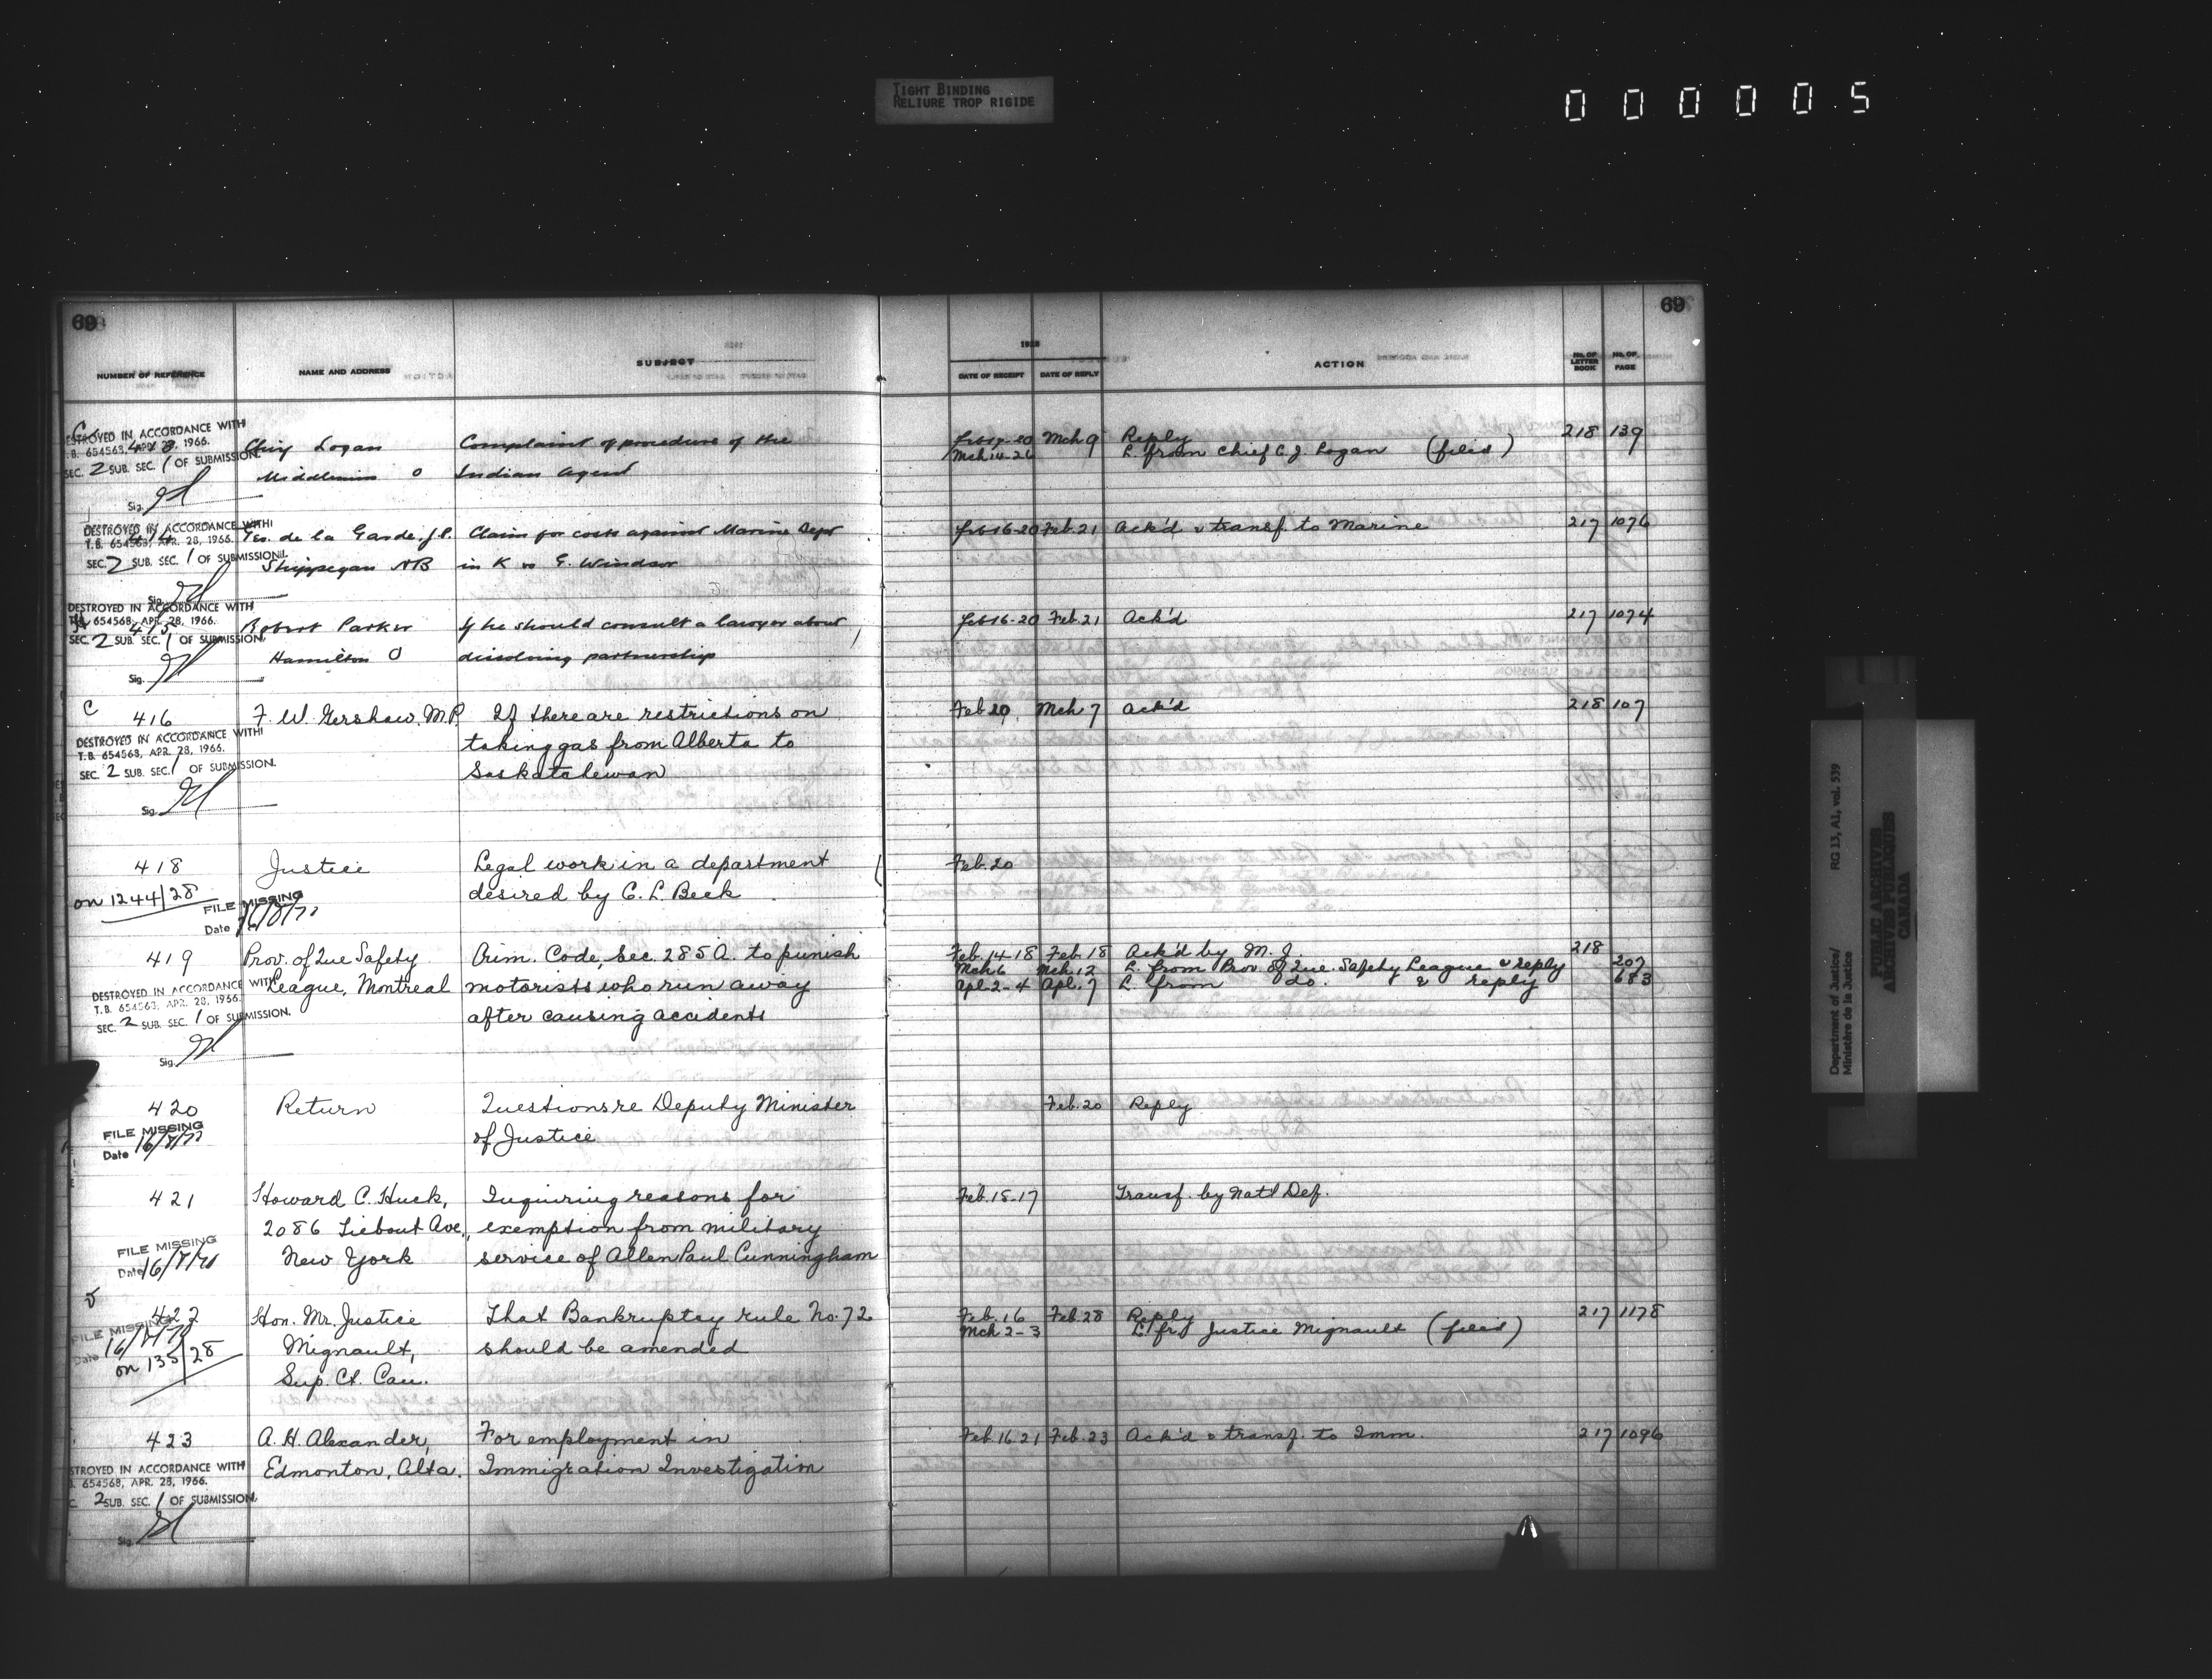 TIGHT BINDING
RELIURE TROP RIGIDE
000005
69
69
NUMBER OF REFERENCE NAME AND ADDRESS SUBJECT
1928
DATE OF RECEIPT DATE OF REPLY ACTION No. OF LETTER BOOK No. OF PAGE
C
413 Logan Complaint of procedure of the Mch 9 Reply 218 139
O Indian Agent Mch 14-26 L. from Chief C. J. Logan (filed)
DESTROYED IN ACCORDANCE WITH
T.B. 654563, APR. 28, 1966.
SEC. 2 SUB. SEC. 1 OF SUBMISSION.
Sig.
414 de la Garde, J.P. Claim for costs against Marine Dept Feb 16-20 Feb. 21 Ack'd & transf. to Marine 217 1076
Shippegan NB in K vs E. Windsor
DESTROYED IN ACCORDANCE WITH
T.B. 654563, APR. 28, 1966.
SEC. 2 SUB. SEC. 1 OF SUBMISSION.
Sig.
415 Robert Parker If he should consult a lawyer about Feb 16-20 Feb. 21 Ack'd 217 1074
Hamilton O dissolving partnership
DESTROYED IN ACCORDANCE WITH
654568, APR. 28, 1966.
SEC. 2 SUB. SEC. 1 OF SUBMISSION.
Sig.
C
416 F. W. Gershaw, M.P. If there are restrictions on Feb 20 Mch 7 Ack'd 218 107
taking gas from Alberta to
Saskatchewan
DESTROYED IN ACCORDANCE WITH
T.B. 654563, APR. 28, 1966.
SEC. 2 SUB. SEC. 1 OF SUBMISSION.
Sig.
418 Justice Legal work in a department Feb. 20
on 1244/28 desired by C. L. Beck
FILE MISSING
Date 16/8/77
419 Prov. of Que Safety Crim. Code, Sec. 285A. to punish Feb. 14-18 Feb. 18 Ack'd by M. J. 218
League, Montreal motorists who run away Mch 6 Mch 12 L. from Prov. of Que. Safety League & reply 207
after causing accidents Apl. 2-4 Apl. 7 L. from do. & reply 683
DESTROYED IN ACCORDANCE WITH
T.B. 654563, APR. 28, 1966.
SEC. 2 SUB. SEC. 1 OF SUBMISSION.
Sig.
420 Return Questions re Deputy Minister Feb. 20 Reply
of Justice
FILE MISSING
Date 16/8/77
421 Howard C. Huck, Inquiring reasons for Feb. 15-17 Transf. by Nat'l Def.
2086 Tiebout Ave., exemption from military
New York service of Allen Paul Cunningham
FILE MISSING
Date 16/8/77
422 Hon. Mr. Justice That Bankruptcy rule No. 72 Feb. 16 Feb. 28 Reply 217 1178
Mignault, should be amended Mch 2-3 L. fr. Justice Mignault (filed)
Sup. Ct. Can.
FILE MISSING
Date
on 135/28
423 A. H. Alexander, For employment in Feb. 16 21 Feb. 23 Ack'd & transf. to Imm. 217 1096
Edmonton, Alta. Immigration Investigation
STROYED IN ACCORDANCE WITH
654568, APR. 28, 1966.
2 SUB. SEC. 1 OF SUBMISSION.
Sig.
Department of Justice/ RG 13, A1, vol. 539
Ministère de la Justice
PUBLIC ARCHIVES
ARCHIVES PUBLIQUES
CANADA